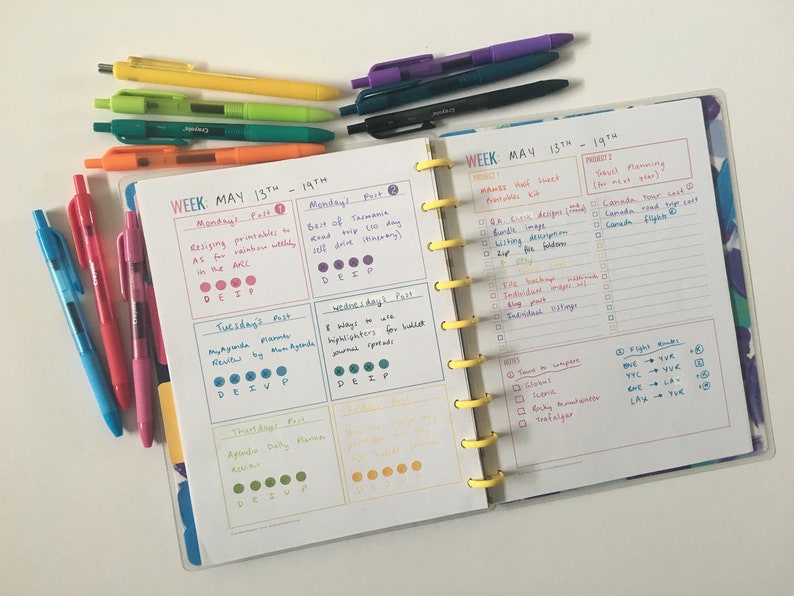 WEEK: MAY 13TH - 19TH
Monday's Post 1
Resising printables to
A5 for rainbow weekly
in the ARC
D E I P
Monday's Post 2
Best of Tasmania
road trip (10 day
self drive itinerary)
D E I P
Tuesday's Post
MyAgenda Planner
Review by MomAgenda
D E I V P
Wednesday's Post
8 ways to use
highlighters for bullet
journal spreads
D E I P
Thursday's Post
Agendio Daily Planner
Review
D E I V P
Friday's Post
D E I V P
WEEK: MAY 13TH - 19TH
PROJECT 1
MAMBI Half Sheet
Printables Kit
Q.A. Check designs
Bundle image
Listing description
Zip file folders
Etsy
File backup
Individual images
Blog post
Individual listings
PROJECT 2
Travel Planning
(for next year)
Canada tour cost 1
Canada road trip cost
Canada flights 2
NOTES
1 Tours to compare
Globus
Scenic
Rocky Mountaineer
Trafalgar
2 Flight Routes
BNE → YVR
YYC → YVR
BNE → LAX
LAX → YVR
Crayola
Crayola
Crayola